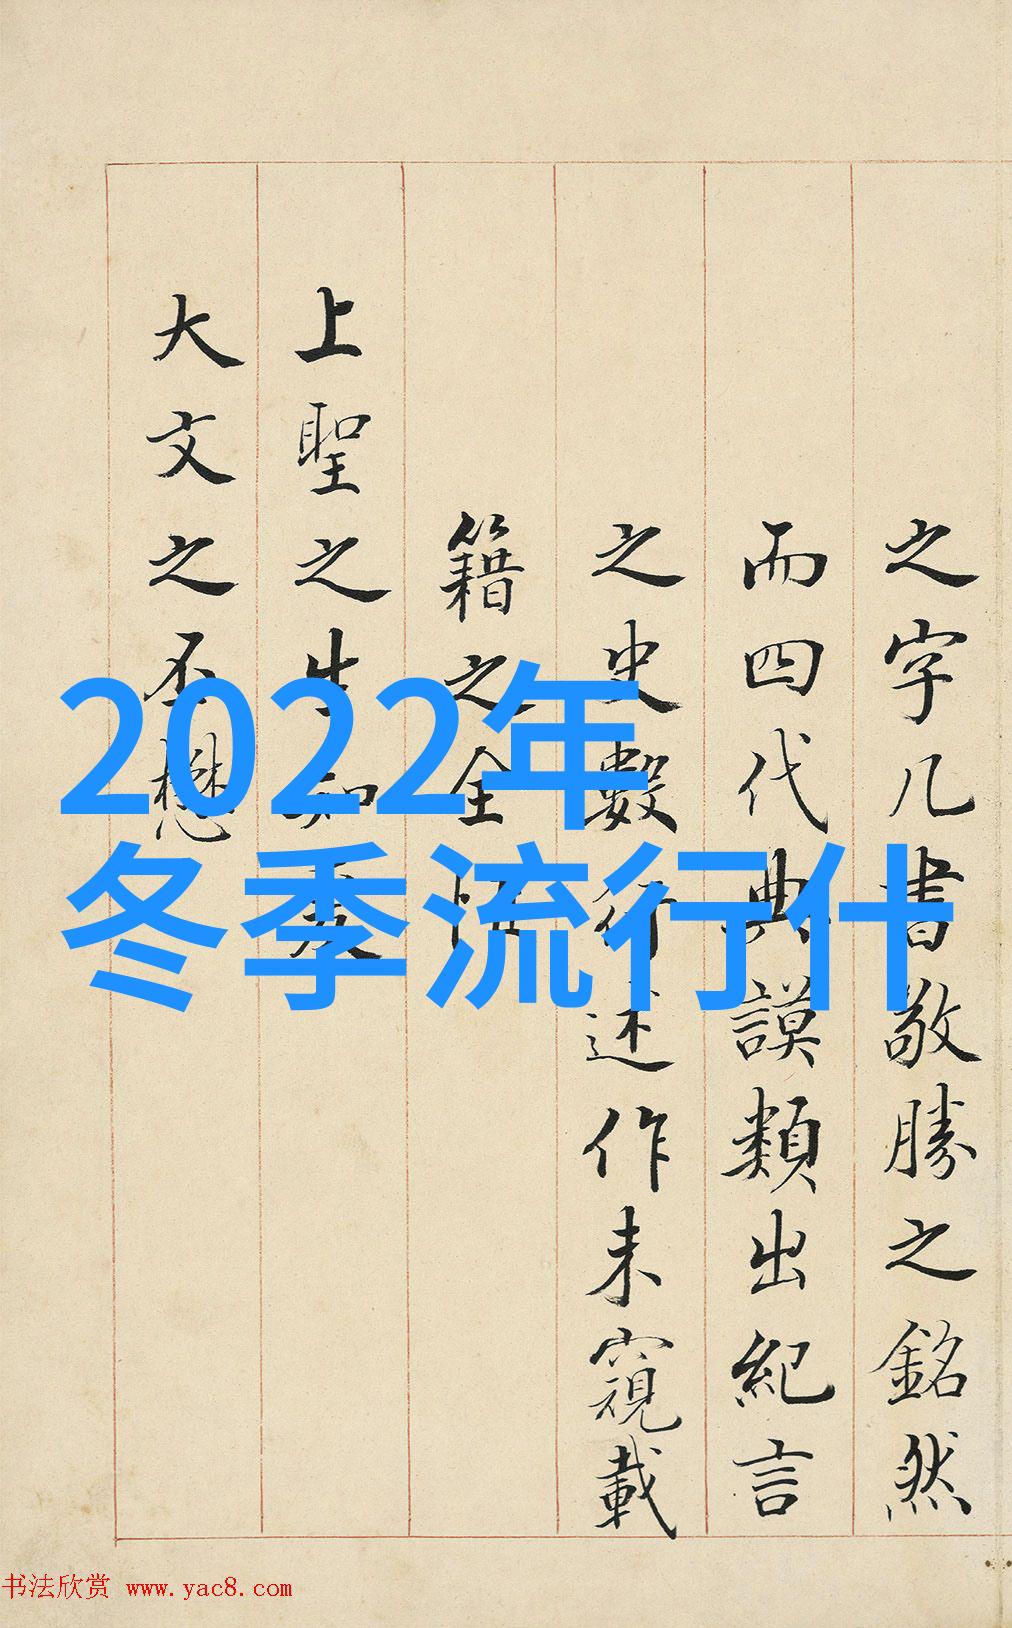 2022年
冬季流行什
之字几書敬勝之銘然
而四代典謨類出紀言
之史數行述作未窺載
籍之全
上聖之生知
大文之丕懋
书法欣赏 www.yac8.com